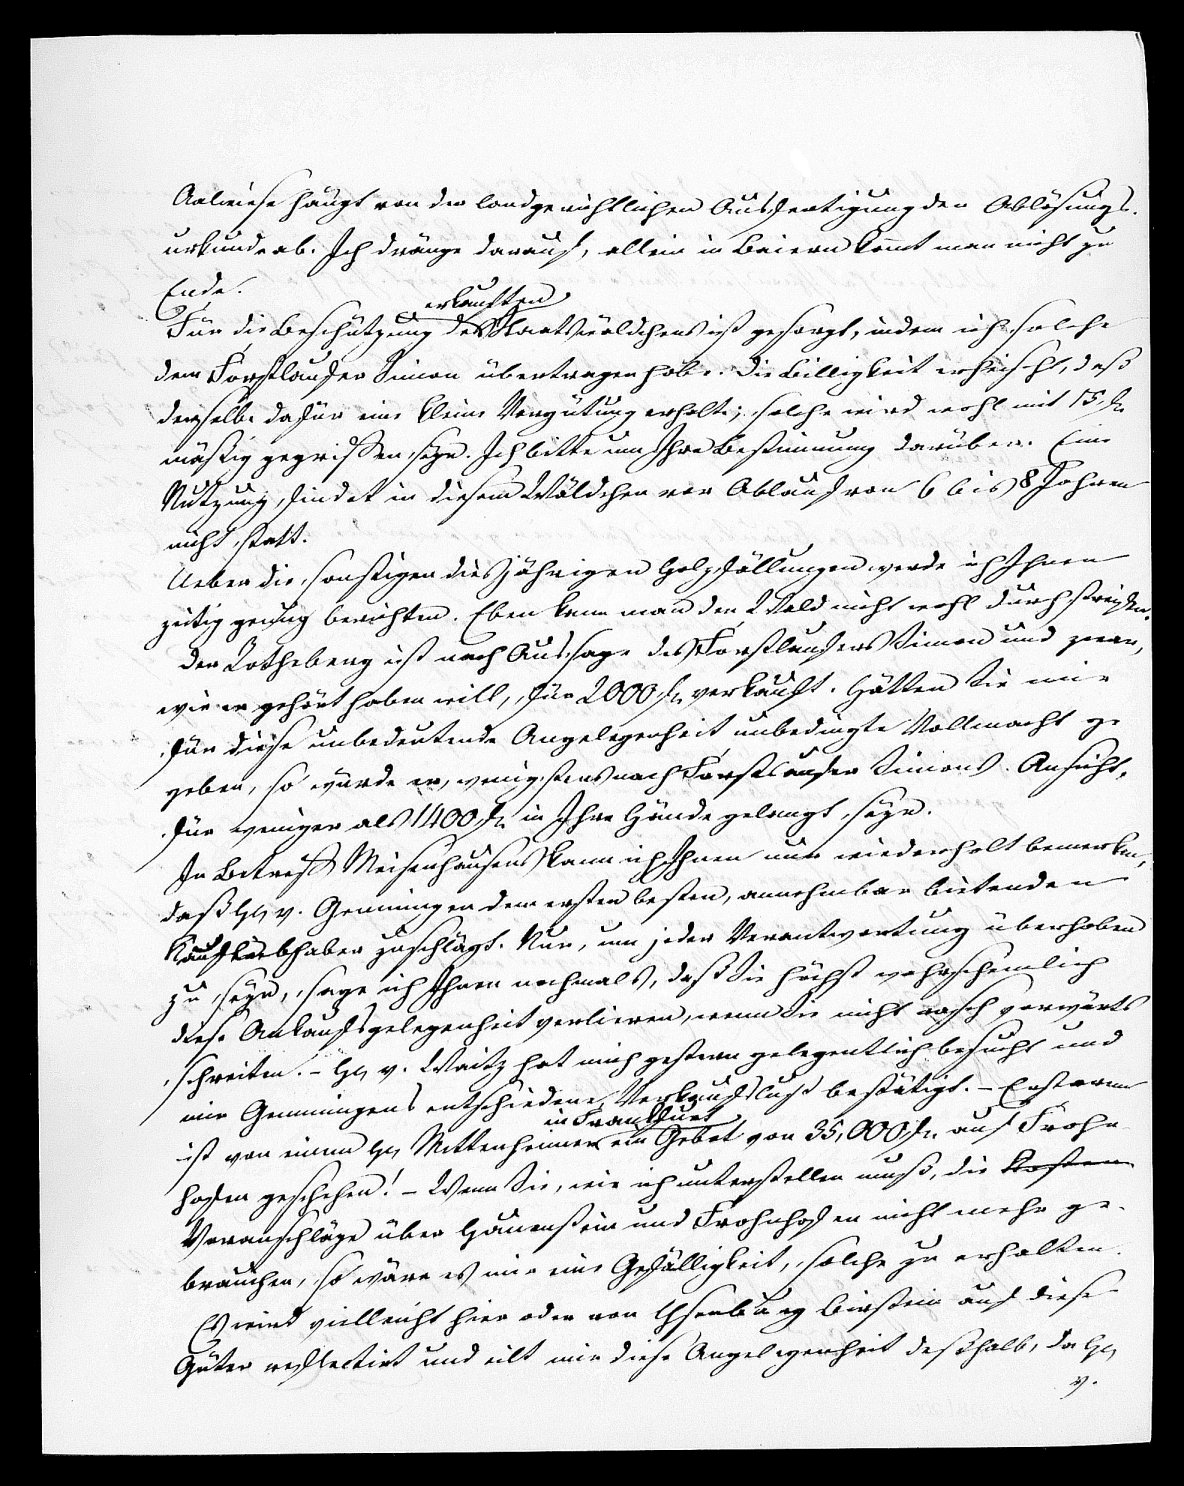 Aalwiese hängt von der landgerichtlichen Ausfertigung der Ablösungs-
urkunde ab. Ich dränge darauf, allein in Baiern komt man nicht zu
Ende.
erkauften
Für die Beschützung des Staatswäldchens ist gesorgt, indem ich solche
dem Forstlaufer Simon übertragen habe. Die Billigkeit erheischt, daß
derselbe dafür eine kleine Vergütung erhalte; solche wird wohl mit 15 fl
mäßig gegriffen seyn. Ich bitte um Ihre Bestimmung darüber. Eine
Nutzung findet in diesem Wäldchen vor Ablauf von 6 bis 8 Jahren
nicht statt.
Ueber die sonstigen diesjährigen Holzfällungen werde ich Ihnen
zeitig genug berichten. Eben kann man den Wald nicht wohl durchstreichen.
Der Rotheberg ist nach Aussage des Forstlaufers Simon und zwar,
wie er gehört haben will, für 2000 fl verkauft. Hätten Sie mir
für diese unbedeutende Angelegenheit unbedingte Vollmacht ge
geben, so würde er, wenigstens nach Forstlaufer Simons Ansicht,
für weniger als 1400 fl in Ihre Hände gelangt seyn.
In Betreff Meisenhausens kann ich Ihnen nur wiederholt bemerken,
daß H v. Gemmingen dem ersten besten, annehmbar bietenden
Kaufliebhaber zuschlägt. Nur, um jeder Verantwortung überhoben
zu seyn, sage ich Ihnen nochmals, daß Sie höchst wahrscheinlich
diese Ankaufsgelegenheit verlieren, wenn Sie nicht rasch vorwärts
schreiten. – H v. Waitz hat mich gestern gelegentlich besucht und
mir Gemmingens entschiedene Verkaufslust bestätigt. – Ersterem
in Frankfurt
ist von einem H Mettenheimer ein Gebot von 35,000 fl. auf Frohn
hofen geschehen! – Wenn Sie, wie ich unterstellen muß, die Kosten
Voranschläge über Hauenstein und Frohnhofen nicht mehr ge-
brauchen, so wäre es mir eine Gefälligkeit, solche zu erhalten.
Es wird vielleicht hier oder von Ysenburg Birstein auf diese
Güter reflectirt und eilt mir diese Angelegenheit deßhalb, da H
v.